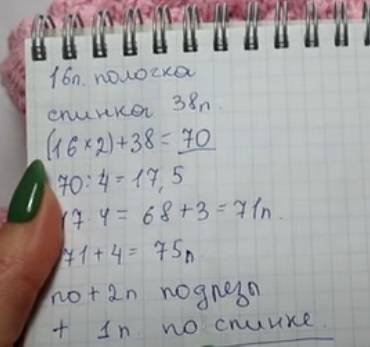 16п. полочка
спинка 38п.
(16×2)+38=70
70:4=17,5
17 4= 68+3=71п.
71+4= 75п
по+2п подрезы
+ 1п по спинке.